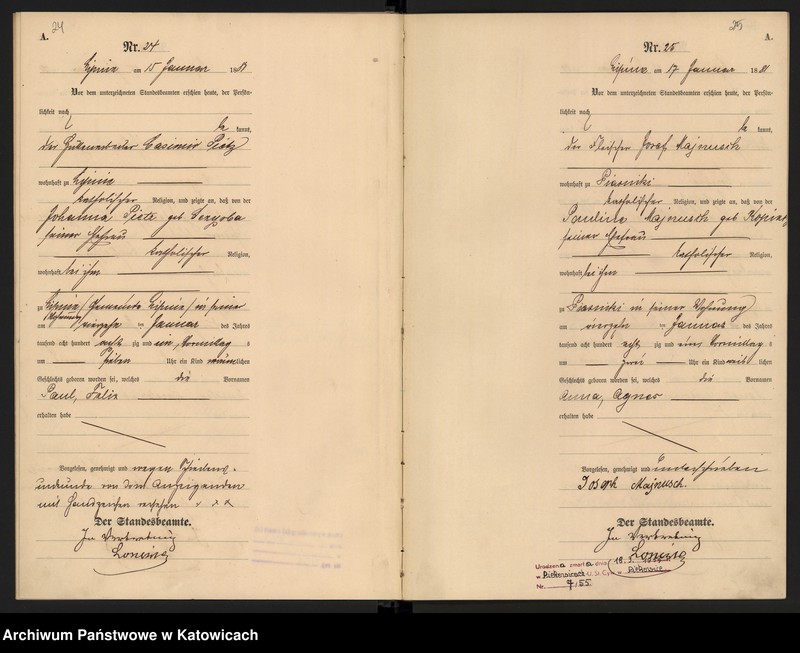 24
A.
Nr. 24
Lipine am 15 Januar 1881
Vor dem unterzeichneten Standesbeamten erschien heute, der Persön-
lichkeit nach
be kannt,
der Hüttenarbeiter Casimir Pietz
wohnhaft zu Lipine
katholischer Religion, und zeigte an, daß von der
Johanna Pietz geb
seiner Ehefrau
katholischer Religion,
wohnhaft bei ihm
zu Lipine (Gemeinde Lipine) in seiner
Wohnung
am vierzehn ten Januar des Jahres
tausend acht hundert acht zig und ein Vormittag s
um sieben Uhr ein Kind männlichen
Geschlechts geboren worden sei, welches die Vornamen
Paul, Felix
erhalten habe
Vorgelesen, genehmigt und wegen Schreibens-
unkunde von dem Anzeigenden
mit Handzeichen versehen x x x
Der Standesbeamte.
In Vertretung
25
A.
Nr. 25
Lipine am 17 Januar 1881
Vor dem unterzeichneten Standesbeamten erschien heute, der Persön-
lichkeit nach
be kannt,
der Fleischer Josef Majnusch
wohnhaft zu Piasniki
katholischer Religion, und zeigte an, daß von der
Pauline Majnusch geb
seiner Ehefrau
katholischer Religion,
wohnhaft bei ihm
zu Piasniki in seiner Wohnung
am vierzehn ten Januar des Jahres
tausend acht hundert acht zig und eins Vormittag s
um zwei Uhr ein Kind weib lichen
Geschlechts geboren worden sei, welches die Vornamen
Anna, Agnes
erhalten habe
Vorgelesen, genehmigt und unterschrieben
Joseph Majnusch.
Der Standesbeamte.
In Vertretung
Urodzona zmarła dnia
w U.S.C.
Nr. 9/55
Archiwum Państwowe w Katowicach